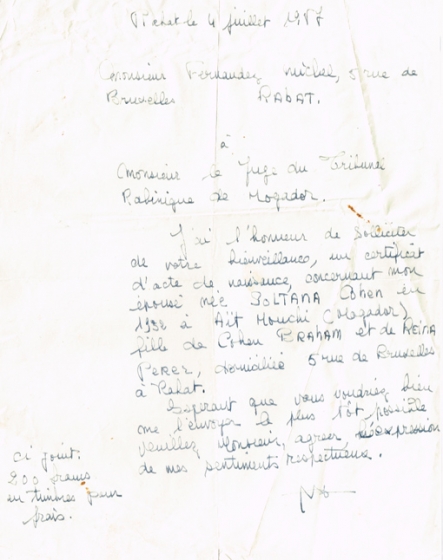 Rabat le 4 juillet 1957
Monsieur Fernandez Michel, 5 rue de
Bruxelles RABAT.
à
Monsieur le Juge du Tribunal
Rabinique de Mogador.
J'ai l'honneur de Solliciter
de votre bienveillance, un certificat
d'acte de naissance, concernant mon
épouse née SOLTANA Cohen en
1932 à Aït Houchi (Mogador)
fille de Cohen BRAHAM et de REINA
PEREZ, domicilié 5 rue de Bruxelles
à Rabat.
Esperant que vous voudriez bien
me l'envoyer le plus tôt possible
veuillez Monsieur, agréer, l'expression
de mes sentiments respectueux.
ci joint:
200 francs
en timbres pour
frais.